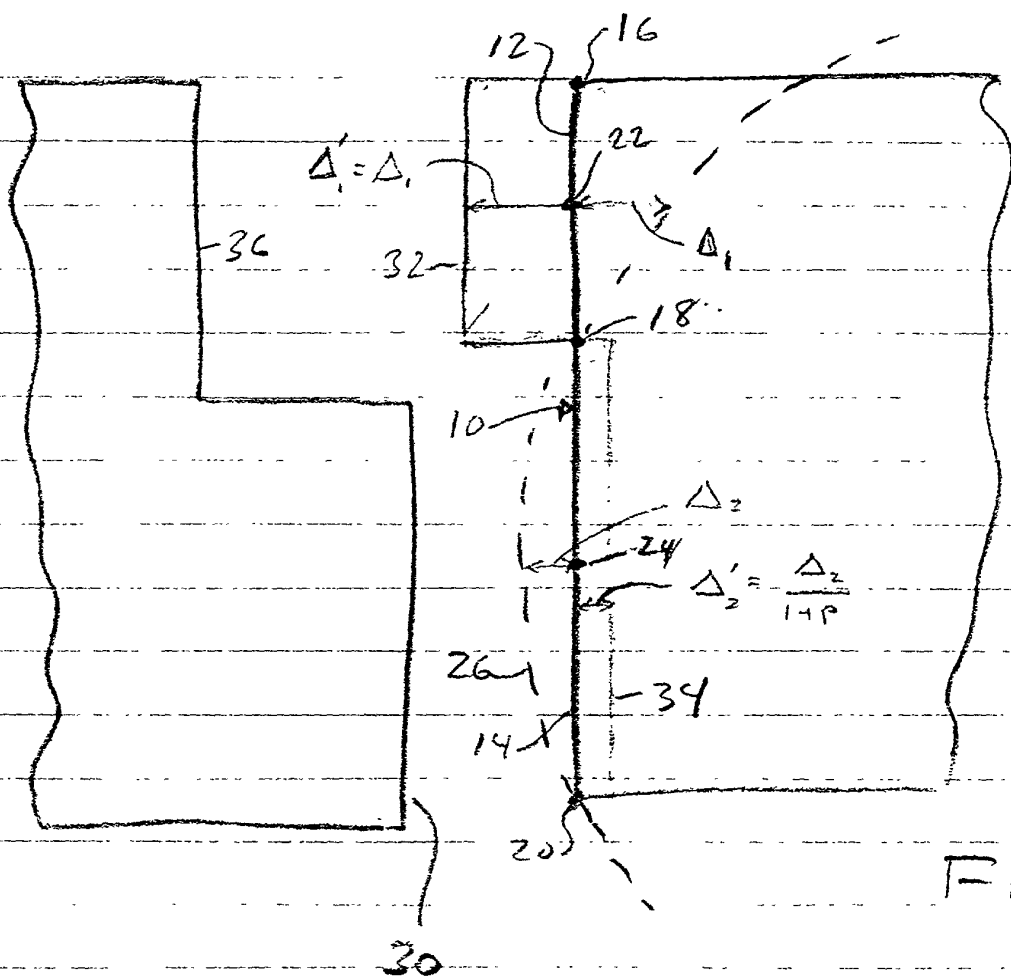 12
16
22
Δ₁' = Δ₁
36
32
Δ₁
18
10
Δ₂
24
Δ₂' = Δ₂ / 1+P
26
34
14
20
30